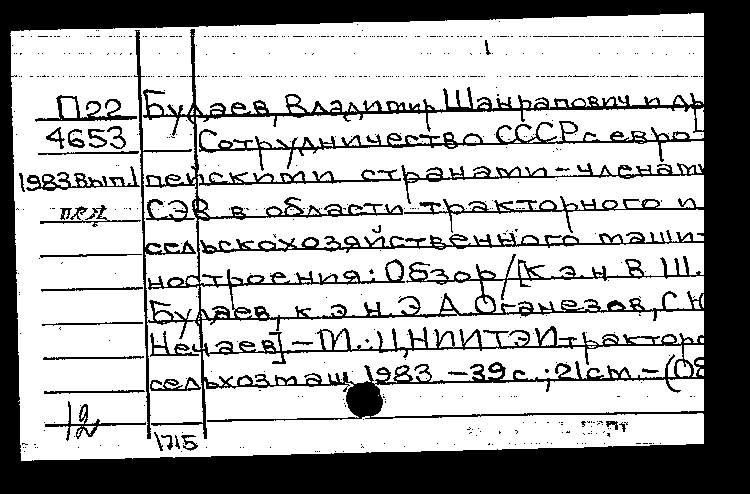 П22 Будаев, Владимир Шаграпович и др
4653 Сотрудничество СССР с евро-
1983 вып.1 пейскими странами-членами
СЭВ в области тракторного и
сельскохозяйственного маши-
ностроения: Обзор/[к.э.н В Ш.
Будаев, к.э.н. Э А Оганезов, С Н
Нечаев] - М.: ЦНИИТЭИтракторо
сельхозмаш 1983 - 39 с.; 21 см. - (Об
12
1715